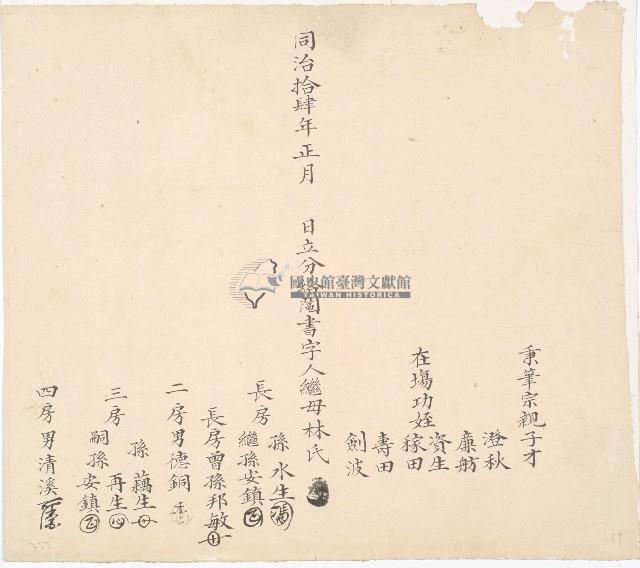 秉筆宗親子才
澄秋
廉舫
在塲功姪資生
稼田
壽田
劍波
同治拾肆年正月 日立分鬮書字人繼母林氏
長房 孫水生
繼孫安鎮
長房曾孫邦敏
二房男德銅
三房 孫藕生
嗣孫安鎮 再生
四房男清溪
國史館臺灣文獻館
TAIWAN HISTORICA
19